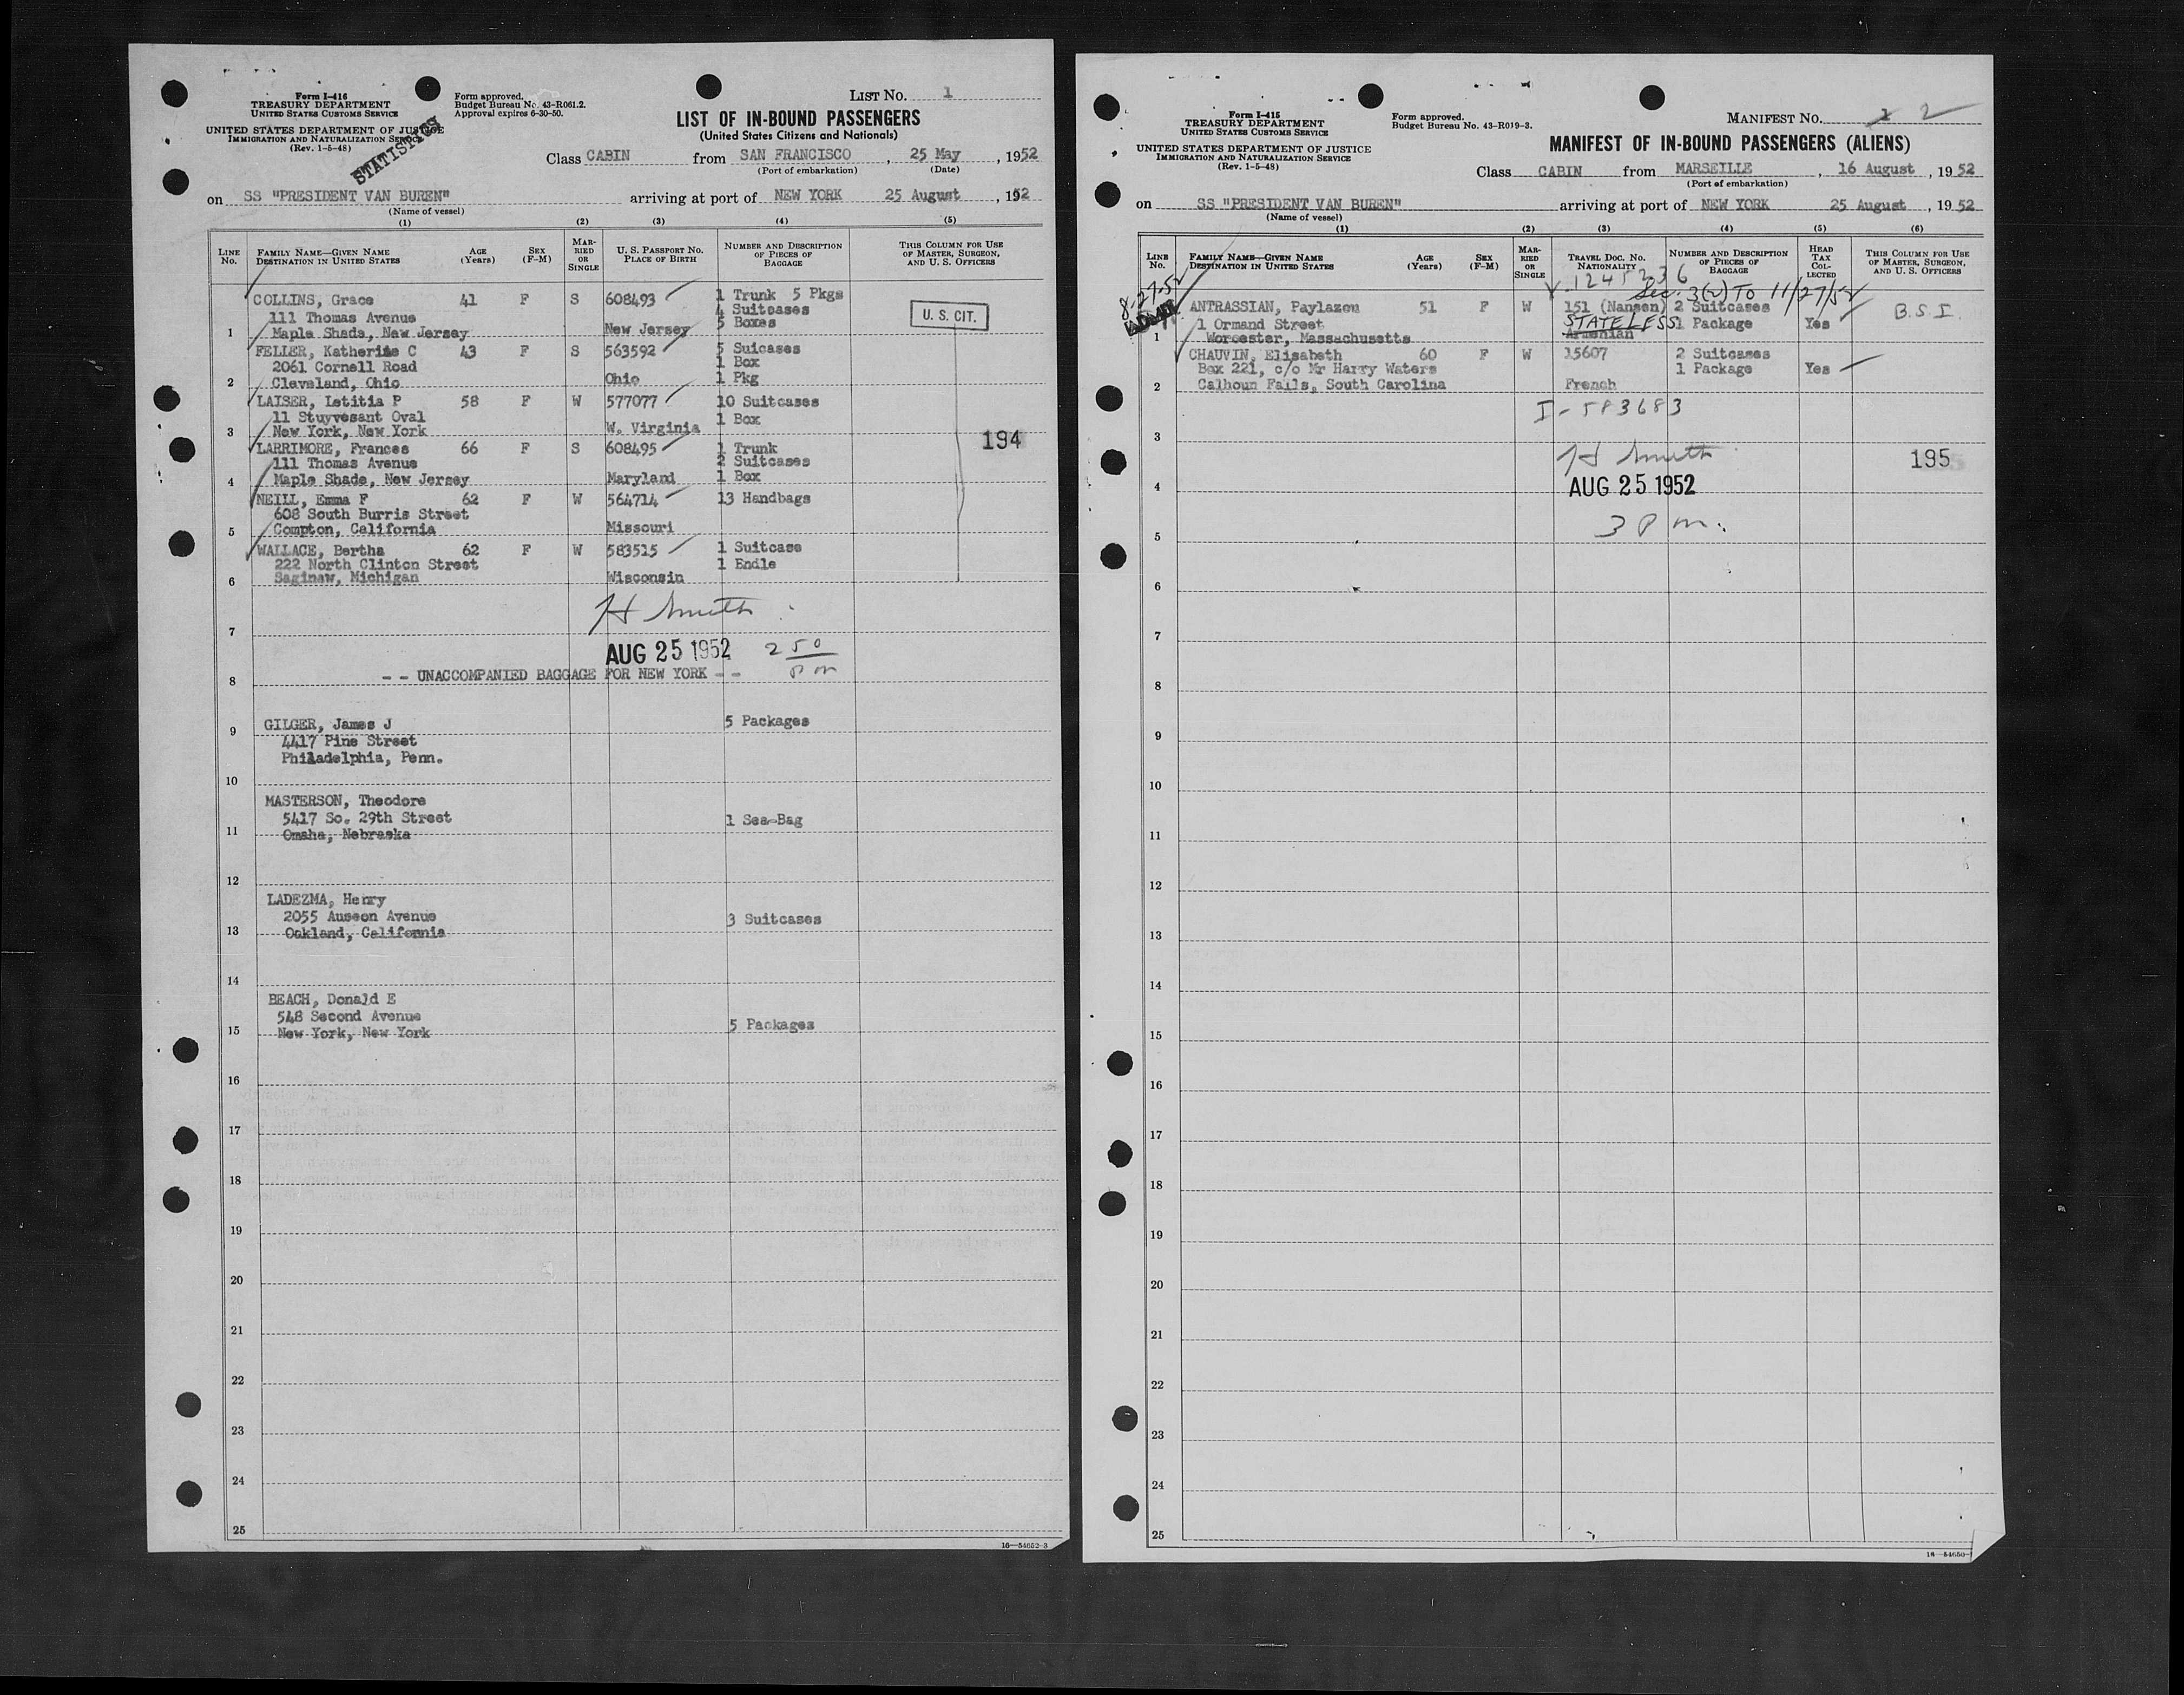 Form I-416
TREASURY DEPARTMENT
UNITED STATES CUSTOMS SERVICE
UNITED STATES DEPARTMENT OF JUSTICE
IMMIGRATION AND NATURALIZATION SERVICE
(Rev. 1-5-48)
STATISTICS
Form approved.
Budget Bureau No. 43-R061.2.
Approval expires 6-30-50.
LIST NO. 1
LIST OF IN-BOUND PASSENGERS
(United States Citizens and Nationals)
Class CABIN from SAN FRANCISCO , 25 May , 1952
(Port of embarkation) (Date)
on SS "PRESIDENT VAN BUREN" arriving at port of NEW YORK 25 August , 1952
(Name of vessel)
(1) (2) (3) (4) (5)
LINE No. FAMILY NAME—GIVEN NAME DESTINATION IN UNITED STATES AGE (Years) SEX (F-M) MARRIED OR SINGLE U. S. PASSPORT NO. PLACE OF BIRTH NUMBER AND DESCRIPTION OF PIECES OF BAGGAGE THIS COLUMN FOR USE OF MASTER, SURGEON, AND U. S. OFFICERS
COLLINS, Grace 41 F S 608493 1 Trunk 5 Pkgs
111 Thomas Avenue 4 Suitcases U. S. CIT.
1 Maple Shade, New Jersey New Jersey 5 Boxes
FELLER, Katherine C 43 F S 563592 5 Suicases
2061 Cornell Road 1 Box
2 Cleveland, Ohio Ohio 1 Pkg
LAISER, Letitia P 58 F W 577077 10 Suitcases
11 Stuyvesant Oval 1 Box
3 New York, New York W. Virginia
194
LARRIMORE, Frances 66 F S 608495 1 Trunk
111 Thomas Avenue 2 Suitcases
4 Maple Shade, New Jersey Maryland 1 Box
NEILL, Emma F 62 F W 564714 13 Handbags
608 South Burris Street
5 Compton, California Missouri
WALLACE, Bertha 62 F W 583515 1 Suitcase
222 North Clinton Street 1 Bndle
6 Saginaw, Michigan Wisconsin
H Smith
7
AUG 25 1952 2 50 pm
8 - - UNACCOMPANIED BAGGAGE FOR NEW YORK - -
9 GILGER, James J 5 Packages
4417 Pine Street
Philadelphia, Penn.
10
MASTERSON, Theodore
5417 So. 29th Street 1 Sea-Bag
11 Omaha, Nebraska
12
LADEZMA, Henry
2055 Auseon Avenue 3 Suitcases
13 Oakland, California
14
BEACH, Donald E
548 Second Avenue
15 New York, New York 5 Packages
16
17
18
19
20
21
22
23
24
25
16—54652-3
Form I-415
TREASURY DEPARTMENT
UNITED STATES CUSTOMS SERVICE
UNITED STATES DEPARTMENT OF JUSTICE
IMMIGRATION AND NATURALIZATION SERVICE
(Rev. 1-5-48)
Form approved.
Budget Bureau No. 43-R019-3.
MANIFEST NO. 2
MANIFEST OF IN-BOUND PASSENGERS (ALIENS)
Class CABIN from MARSEILLE , 16 August , 1952
(Port of embarkation)
on SS "PRESIDENT VAN BUREN" arriving at port of NEW YORK 25 August , 1952
(Name of vessel)
(1) (2) (3) (4) (5) (6)
LINE No. FAMILY NAME—GIVEN NAME DESTINATION IN UNITED STATES AGE (Years) SEX (F-M) MARRIED OR SINGLE TRAVEL DOC. NO. NATIONALITY NUMBER AND DESCRIPTION OF PIECES OF BAGGAGE HEAD TAX COLLECTED THIS COLUMN FOR USE OF MASTER, SURGEON, AND U. S. OFFICERS
V-1245236
8-27-52 Sec. 3(2) TO 11/27/52
ADMIT ANTRASSIAN, Paylazou 51 F W 151 (Nansen) 2 Suitcases B.S.I.
1 Ormand Street STATELESS 1 Package Yes
1 Worcester, Massachusetts Armenian
CHAUVIN, Elisabeth 60 F W 15607 2 Suitcases
Box 221, c/o Mr Harry Waters 1 Package Yes
2 Calhoun Falls, South Carolina French
I-583683
3
H Smith 195
4 AUG 25 1952
3 P m.
5
6
7
8
9
10
11
12
13
14
15
16
17
18
19
20
21
22
23
24
25